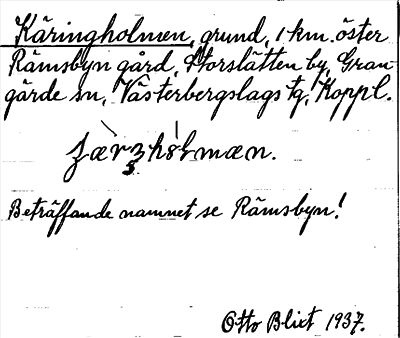 Käringholmen, grund, 1 km. öster
Rämsbyn gård, Storslätten by, Gran-
gärde sn, Västerbergslags tg, Koppl.
Beträffande namnet se Rämsbyn!
Otto Blixt 1937.